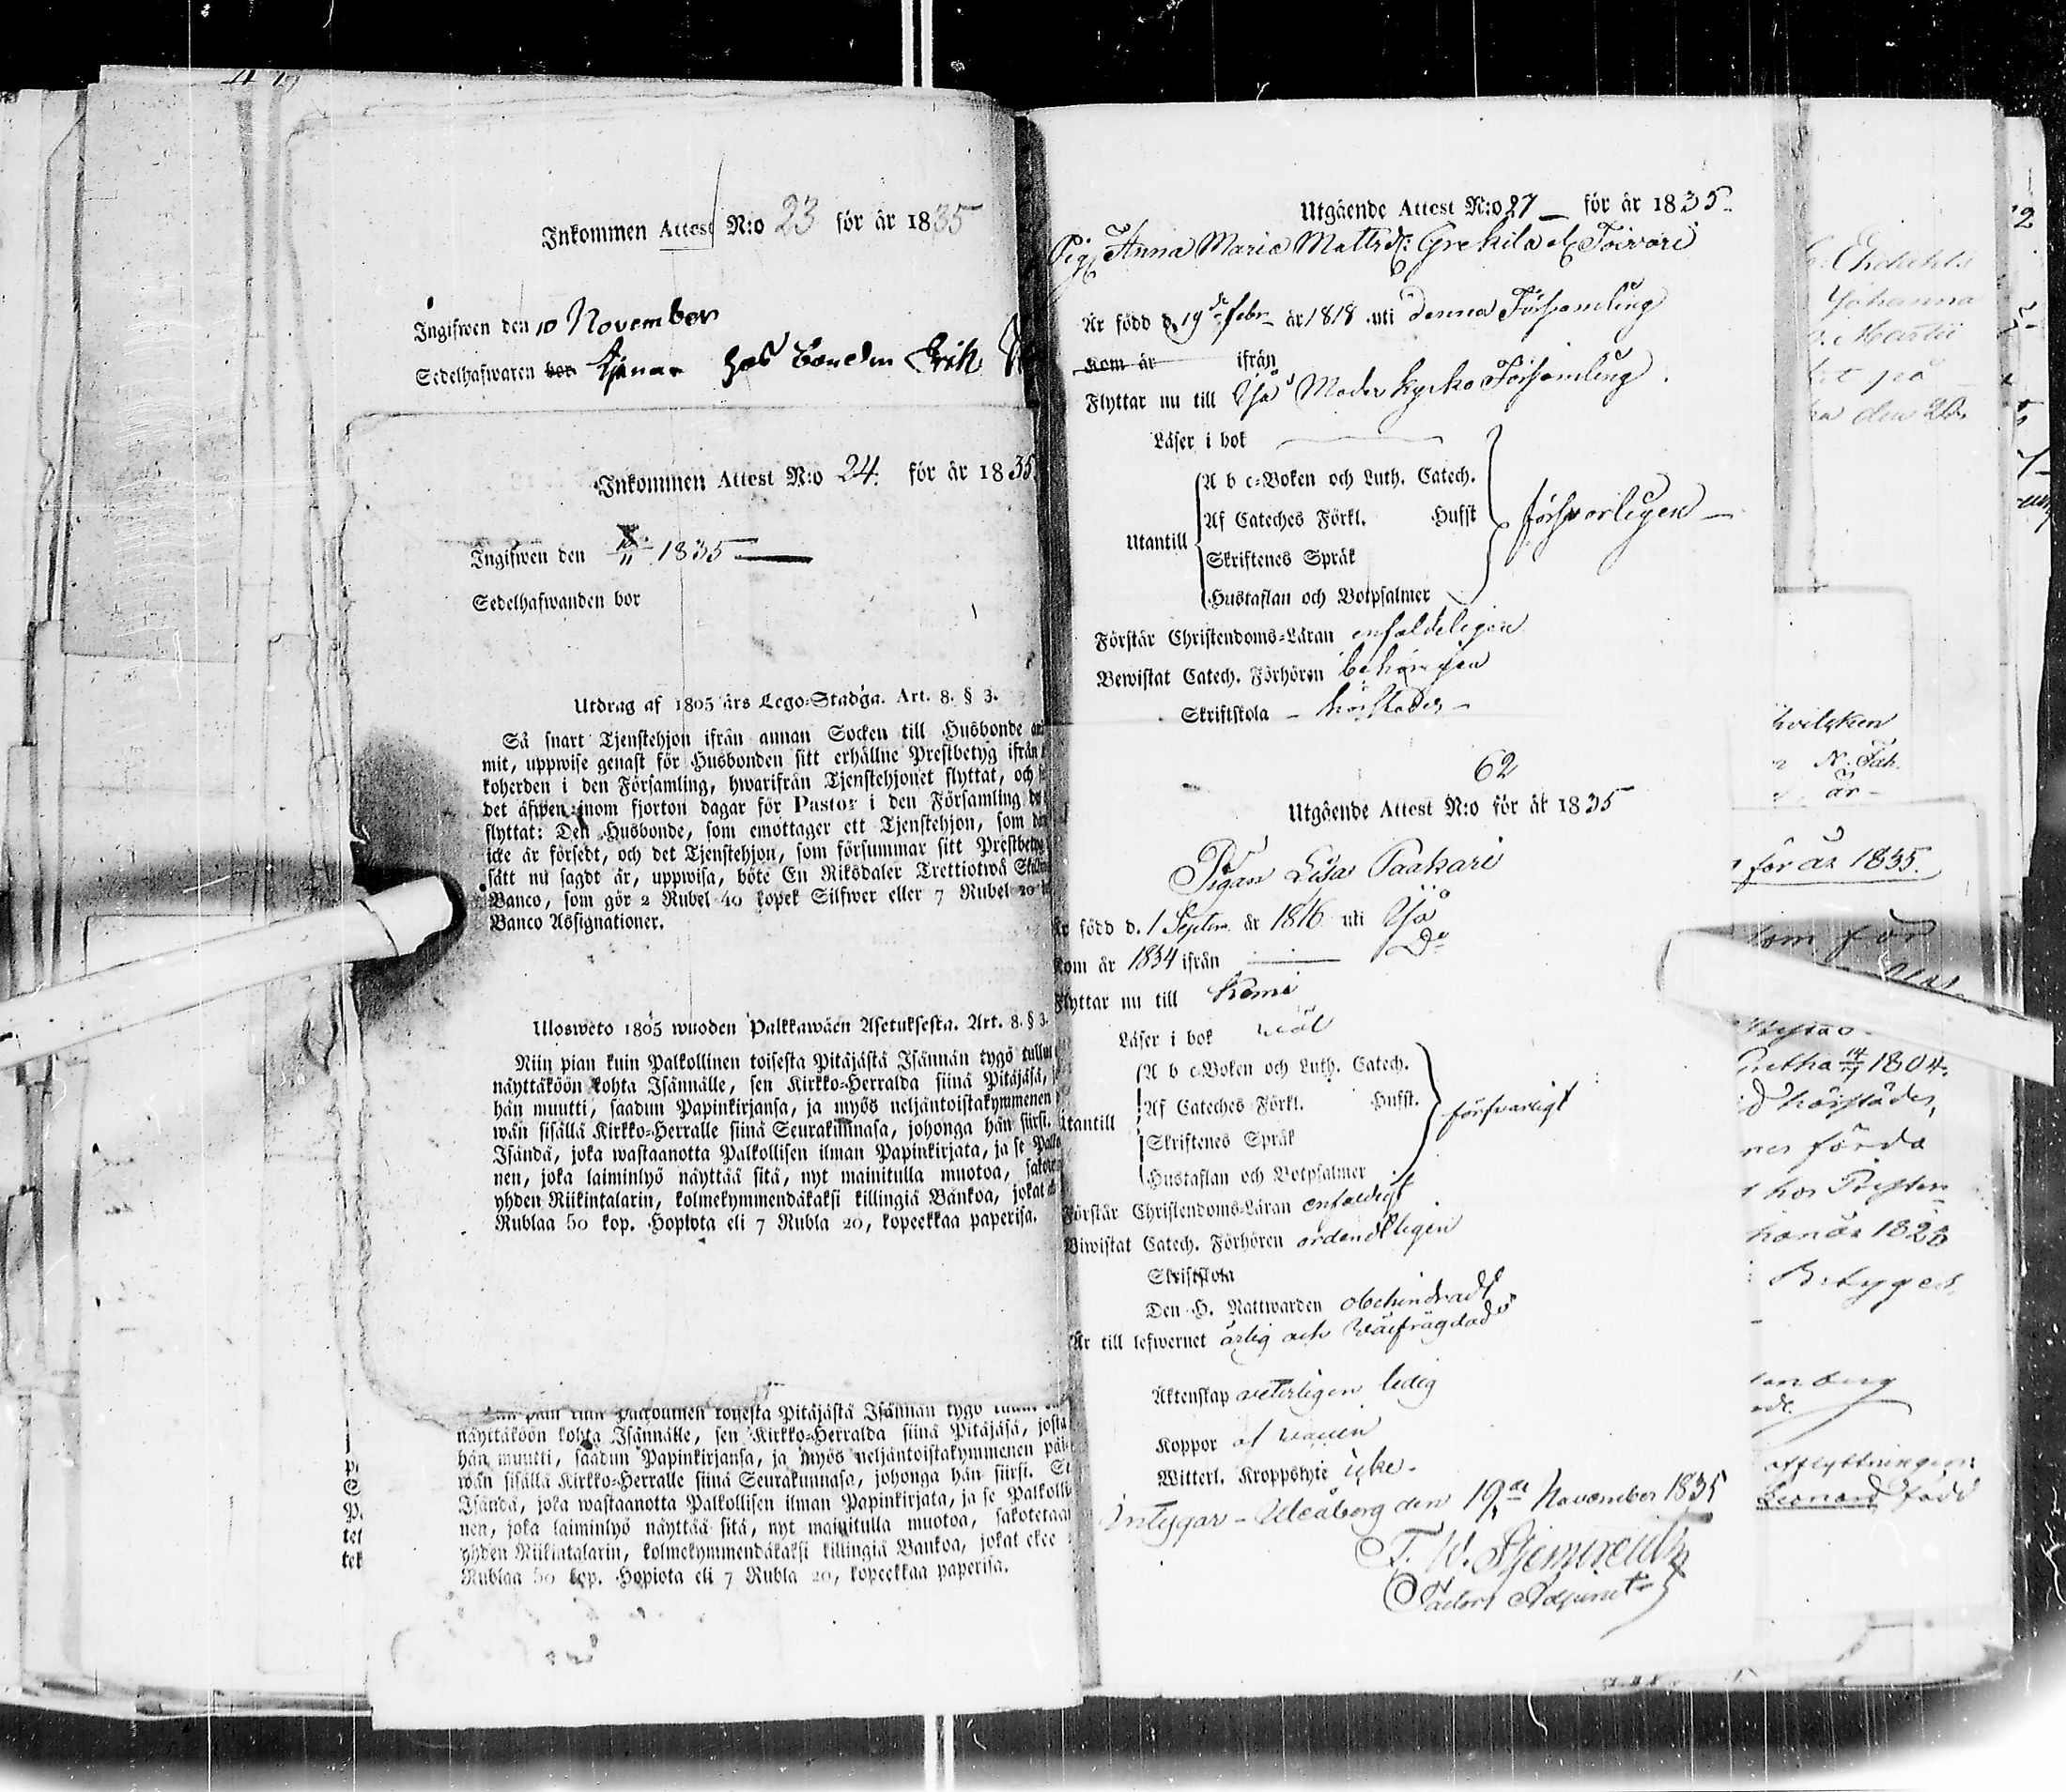 Inkommen Attest N:o 23 för år 1835
Ingifwen den 10 November
Sedelhafwaren bor tjenar hos bonden Erik
Inkommen Attest N:o 24. för år 1835.
Ingifwen den 10/11 1835
Sedelhafwanden bor
Utdrag af 1805 års Lego-Stadga. Art. 8. § 3.
Så snart Tjenstehjon ifrån annan Socken till Husbonde
mit, uppwise genast för Husbonden sitt erhållne Prestbetyg ifrån
koherden i den Församling, hwarifrån Tjenstehjonet flyttat, och
det äfwen inom fjorton dagar för Pastor i den Församling
flyttat: Den Husbonde, som emottager ett Tjenstehjon, som
icke är försedt, och det Tjenstehjon, som försummar sitt Prestbetyg
sätt nu sagdt är, uppwisa, böte En Riksdaler Trettiotwå
Banco, som gör 2 Rubel 40 kopek Silfwer eller 7 Rubel 20
Banco Assignationer.
Ulosweto 1805 wuoden Palkkawäen Asetuksesta. Art. 8. § 3.
Niin pian kuin Palkollinen toisesta Pitäjästä Isännän tygö tullut
näyttäköön kohta Isännälle, sen Kirkko-Herralda siinä Pitäjäsä,
hän muutti, saadun Papinkirjansa, ja myös neljäntoistakymmenen
wän sisällä Kirkko-Herralle siinä Seurakunnasa, johonga hän siirsi.
Isändä, joka wastaanotta Palkollisen ilman Papinkirjata, ja se
nen, joka laiminlyö näyttää sitä, nyt mainitulla muotoa,
yhden Riikintalarin, kolmekymmendäkaksi killingiä Bankoa, jokat
Rublaa 50 kop. Hopiota eli 7 Rubla 20, kopeekkaa paperisa.
toisesta Pitäjästä Isännän tygö
näyttäköön kohta Isännälle, sen Kirkko-Herralda siinä Pitäjäsä, josta
hän muutti, saadun Papinkirjansa, ja myös neljäntoistakymmenen
wän sisällä Kirkko-Herralle siinä Seurakunnasa, johonga hän siirsi.
Isändä, joka wastaanotta Palkollisen ilman Papinkirjata, ja se
nen, joka laiminlyö näyttää sitä, nyt mainitulla muotoa, sakotetaan
yhden Riikintalarin, kolmekymmendäkaksi killingiä Bankoa, jokat ekee
Rublaa 50 kop. Hopiota eli 7 Rubla 20, kopeekkaa paperisa.
Utgående Attest N:o 27 för år 1835.
Anna Maria Mattsdr: Grekila Toivari
Är född d. 19de Febr. år 1818 uti denna Församling
Kom år ifrån
Flyttar nu till Ijo Moder kyrko Församling.
Läser i bok
A b c-Boken och Luth. Catech.
Af Cateches Förkl. Hufst
Utantill
försvarligen
Skriftenes Språk
Hustaflan och Botpsalmer
Förstår Christendoms-Läran enfaldeligen
Bewistat Catech. Förhören behörigen
Skriftskola härstädes
62
Utgående Attest N:o för år 1835
Pigan Lisa Paakari
Är född d. 1 Septem. år 1816 uti Ijo
Kom år 1834 ifrån Do
Flyttar nu till Kemi
Läser i bok wäl
A b c-Boken och Luth. Catech.
Af Cateches Förkl. Hufst.
Utantill
försvarligt
Skriftenes Språk
Hustaflan och Botpsalmer
Förstår Christendoms-Läran enfaldigt
Biwistat Catech. Förhören ordentligen
Skriftskola
Den H. Nattwarden obehindradt
Är till lefwernet ärlig och wälfrägdad
Äktenskap witterligen ledig
Koppor
Witterl. Kroppslyte icke.
Intygar Uleåborg den 19de November 1835
Pastors Adjunct
Johanna
Martii
för år 1835.
som för
1804.
härstädes,
förda
hos
1828
Betyges
afflyttningen
Leonard född